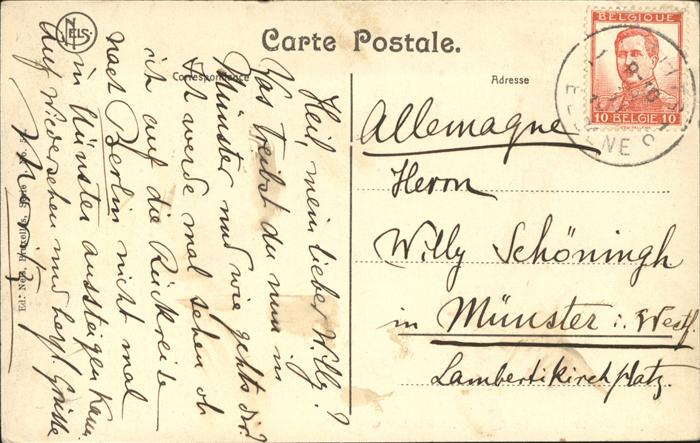 NELS.
Carte Postale.
Correspondance
Adresse
BELGIQUE
10 BELGIE 10
Heil, mein lieber Willy!
Was treibst du nun in
Münster und wie gehts dir?
Ich werde mal sehen ob
ich auf die Rückreise
nach Berlin nicht mal
in Münster aussteigen kann.
Auf Wiedersehen und herzl. Grüße
Allemagne
Herrn
Willy Schöningh
in Münster i. Westf.
Lambertikirchplatz.
Ed. Nels, Bruxelles,